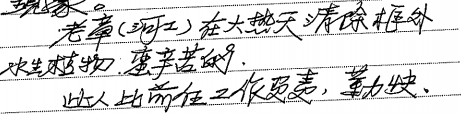 现象。
老章(河工)在大热天清除框外
水生植物.蛮辛苦的.
此人比前任工作负责,勤快.